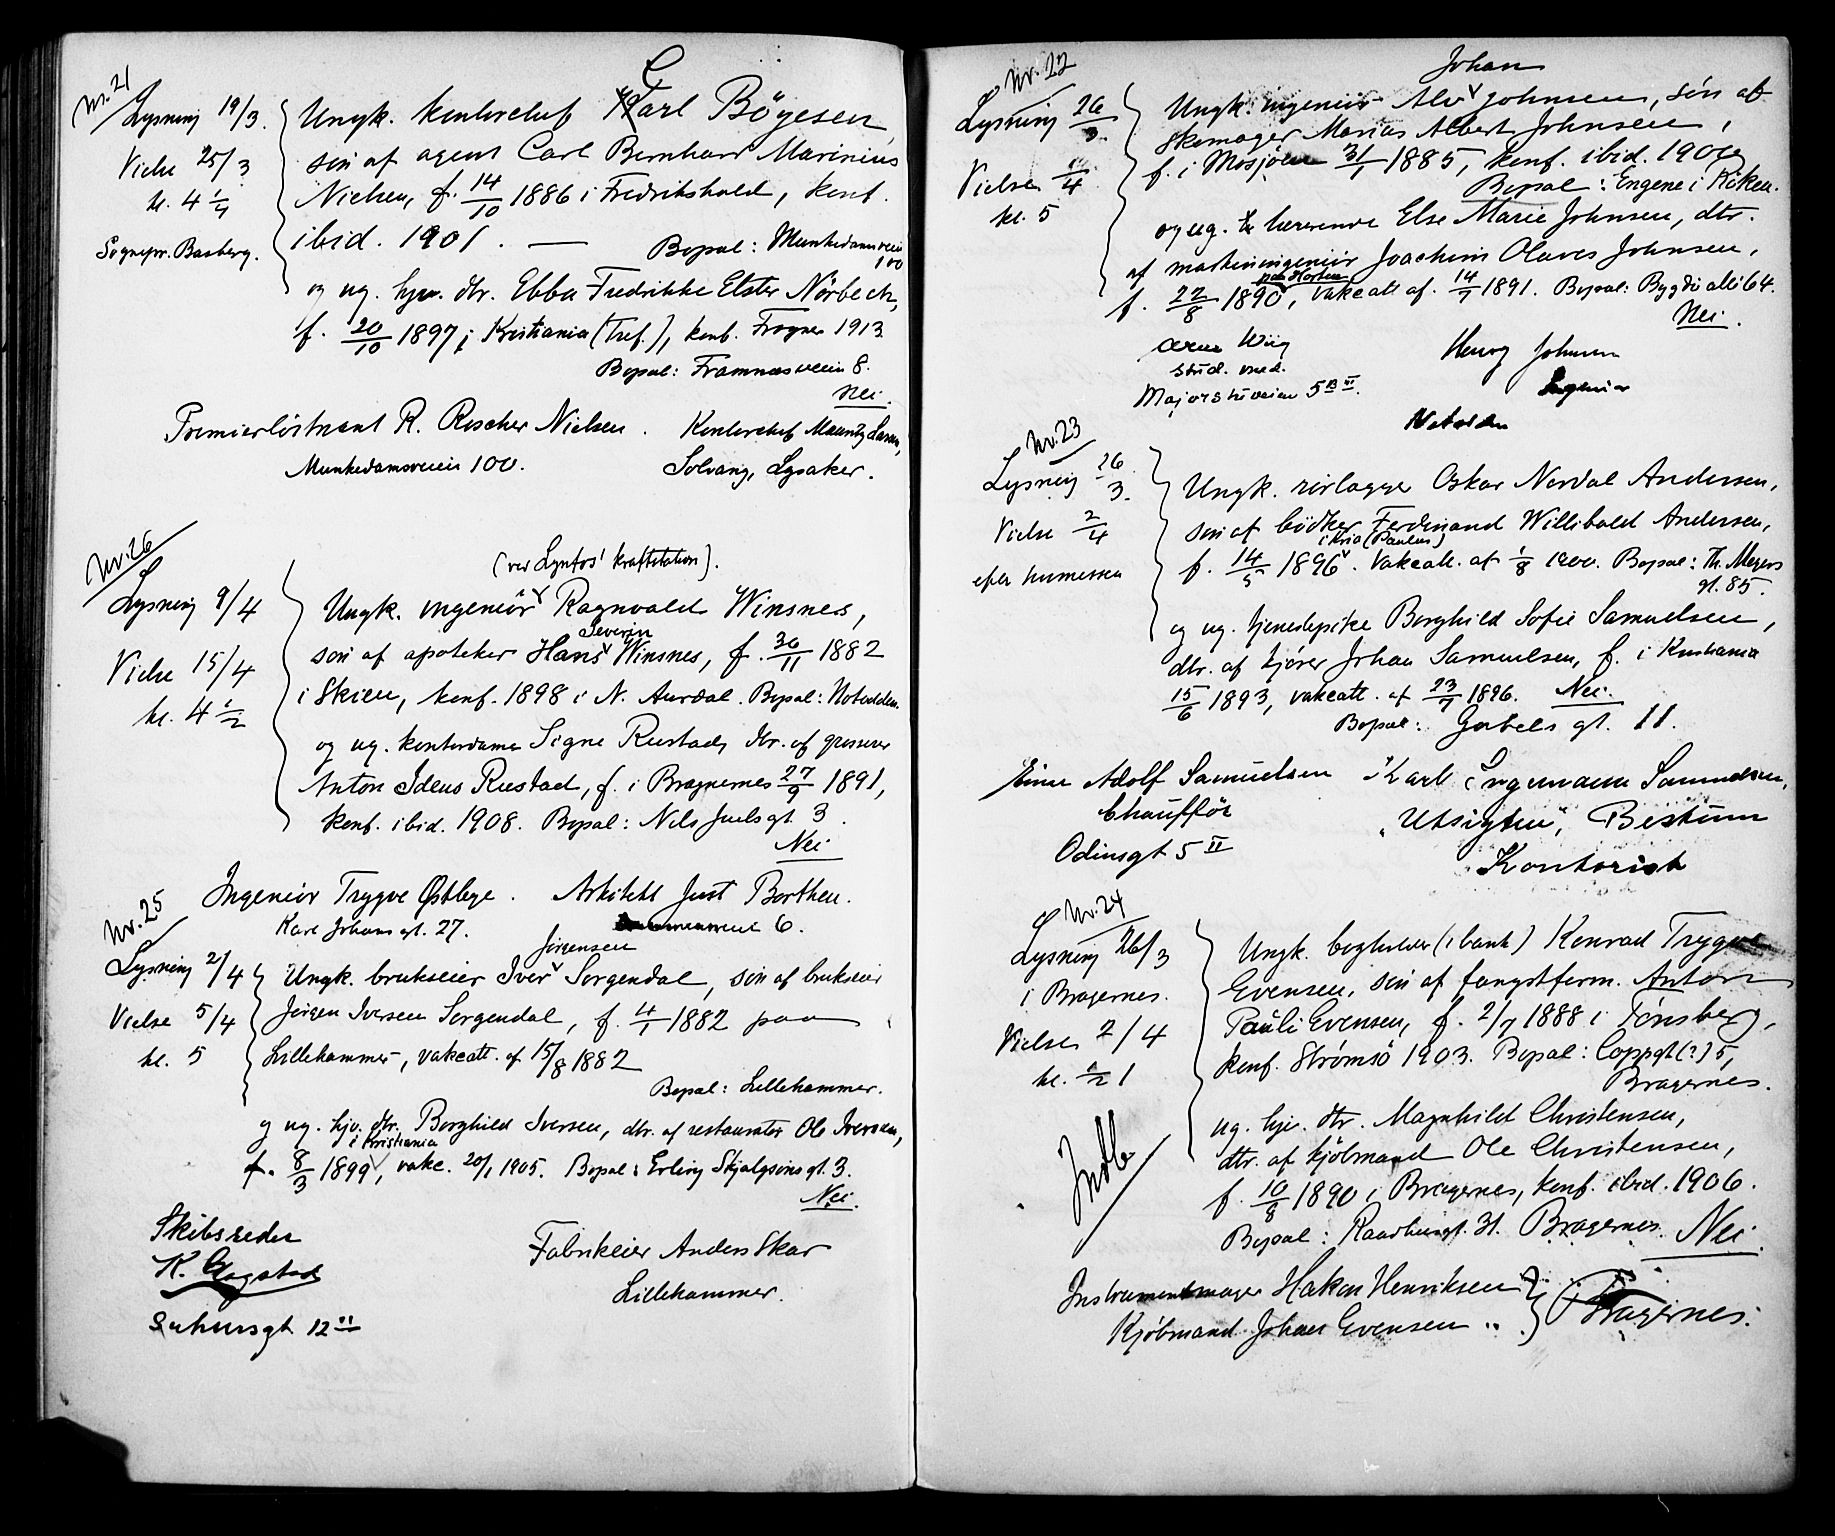 Nr. 21
Lysning 19/3.
Vielse 25/3
kl. 4 1/4
Sognepr. Basberg.
Ungk. kontorchef Carl Böyesen,
søn af agent Carl Bernhard Marinius
Nielsen, f. 14/10 1886 i Fredrikshald, konf.
ibid. 1901. — Bopæl: Munkedamsveien
100
og ug. hjv. dtr. Ebba Fredrikke Elster Nörbech,
f. 20/10 1897 i Kristiania (Tref.), konf. Frogner 1913
Bopæl: Framnæsveien 8.
Nei.
Premierløitnant R. Roscher Nielsen. Kontorchef Mauritz Larsen,
Munkedamsveien 100. Solvang, Lysaker.
Nr. 26
Lysning 9/4
Vielse 15/4
kl. 4 1/2
(ved Lynfos' kraftstation).
Ungk. ingeniör Ragnvald Winsnes,
søn af apoteker Hans Severin Winsnes, f. 30/11 1882
i Skien, konf. 1898 i N. Aurdal. Bopæl: Notodden
og ug. kontordame Signe Rustad, dtr. af grosserer
Anton Ideus Rustad, f. i Bragernes 27/9 1891,
konf. ibid. 1908. Bopæl: Nils Juels gt. 3.
Nei
Ingeniör Trygve Østbye. Arkitekt Just Borthen.
Karl Johans gt. 27. 6.
Nr. 25
Lysning 2/4
Vielse 5/4
kl. 5
Jörgensen
Ungk. brukseier Iver Sorgendal, søn af brukseier
Jörgen Iversen Sorgendal, f. 4/1 1882 paa
Lillehammer, vakcatt. af 15/8 1882
Bopæl: Lillehammer.
og ug. hjv. dtr. Borghild Iversen, dtr. af restauratør Ole Iversen,
i Kristiania
f. 8/3 1899, vakc. 20/1 1905. Bopæl: Erling Skjalgsøns gt. 3.
Nei.
Skibsreder
K. Gogstad
Suhmsgt 12 II
Fabrikeier Anders Skar
Lillehammer.
Nr. 22
Lysning 26/3.
Vielse /4
kl. 5
Johan
Ungk. ingeniør Alv Johnsen, søn af
skomager Marius Albert Johnsen,
f. i Mosjøen 31/1 1885, konf. ibid. 190
Bopæl: Engene i Röken.
og ug. lærerinde Else Marie Johnsen, dtr.
af maskiningeniör Joachim Olaves Johnsen,
paa Horten
f. 22/8 1890, vakcatt af. 14/7 1891. Bopæl: Bygdö allé 64.
Nei.
Arne Wiig
stud. med.
Majorstuveien 5 B VI.
Henry Johnsen
Ingeniør
Notodden
Nr. 23
Lysning 26/3.
Vielse 2/4
efter høimessen
Ungk. rørlægger Oskar Nordal Andersen,
søn af bødker Ferdinand Willibald Andersen,
i Kria (Paulus)
f. 14/5 1896. Vakcatt. af 1/8 1900. Bopæl: Th. Meyers
gt. 85.
og ug. tjenestepike Borghild Sofie Samuelsen,
dtr. af kjører Johan Samuelsen, f. i Kristiania
15/6 1893, vakcatt. af 23/7 1896. Nei.
Bopæl: Gabels gt. 11.
Einar Adolf Samuelsen Karl Ingemann Samuelsen,
Chaufför "Utsigten", Bestum
Odinsgt 5 II Kontorist
Nr. 24
Lysning 26/3
i Bragernes.
Vielse 2/4
kl. 1/2 1
Indb
Ungk. bogholder (i bank) Konrad Trygve
Evensen, søn af fangstform. Anton
Pauli Evensen, f. 2/7 1888 i Tönsberg,
konf. Strømsö 1903. Bopæl: Coppgt (?) 5,
Bragernes.
ug. hjv. dtr. Magnhild Christensen,
dtr. af kjøbmand Ole Christensen,
f. 10/8 1890 i Bragernes, konf. ibid. 1906.
Bopæl: Raadhusgt. 31. Bragernes. Nei.
Instrumentmager Håkon Henriksen }
Kjøbmand Johan Evensen " } Bragernes.